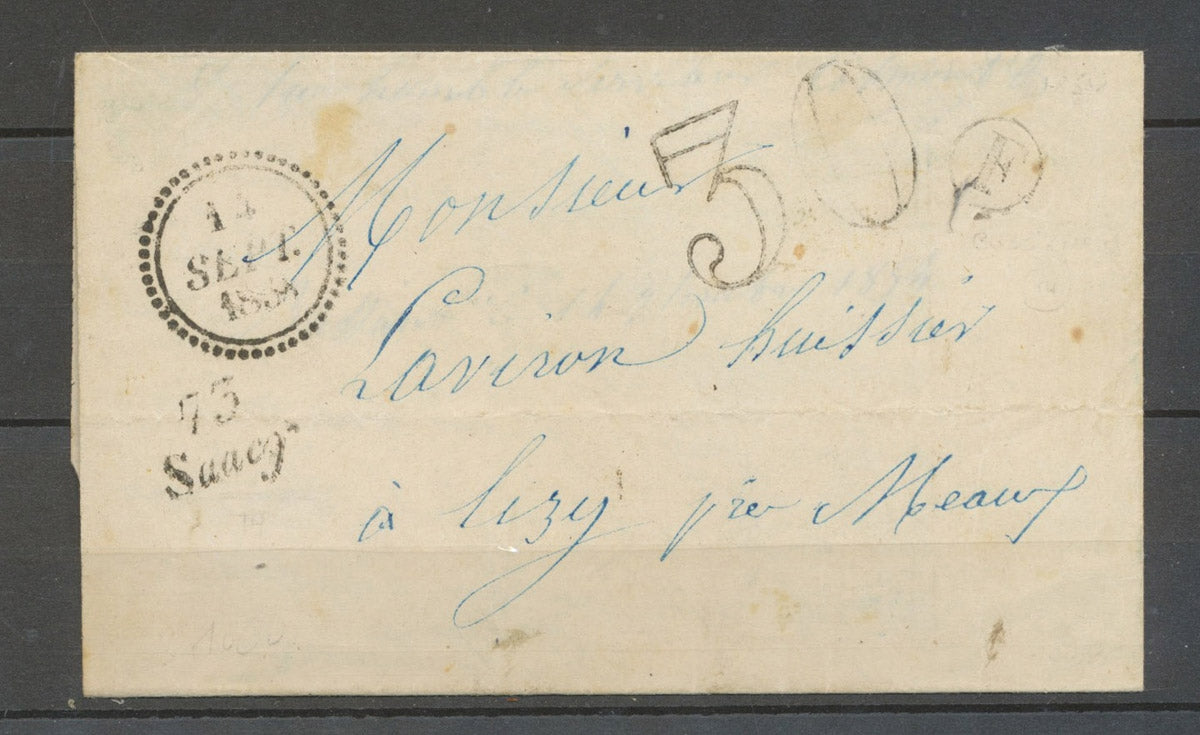 30
E
14
SEPT.
185
73
Saacy
Monsieur
Laviron huissier
à Lizy près Meaux